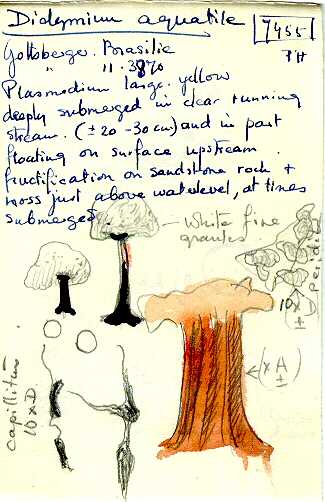 Didymium aquatile
7455
Gottsberger. Brasilie
" 11.3970
Plasmodium large. yellow
deeply submerged in clear running
stream. (±20-30cm) and in part
floating on surface upstream.
fructification on sandstone rock +
moss just above waterlevel, at times
submerged
White fine
granules.
10xD
±
peridium
(xA)
±
Capillitium
10xD